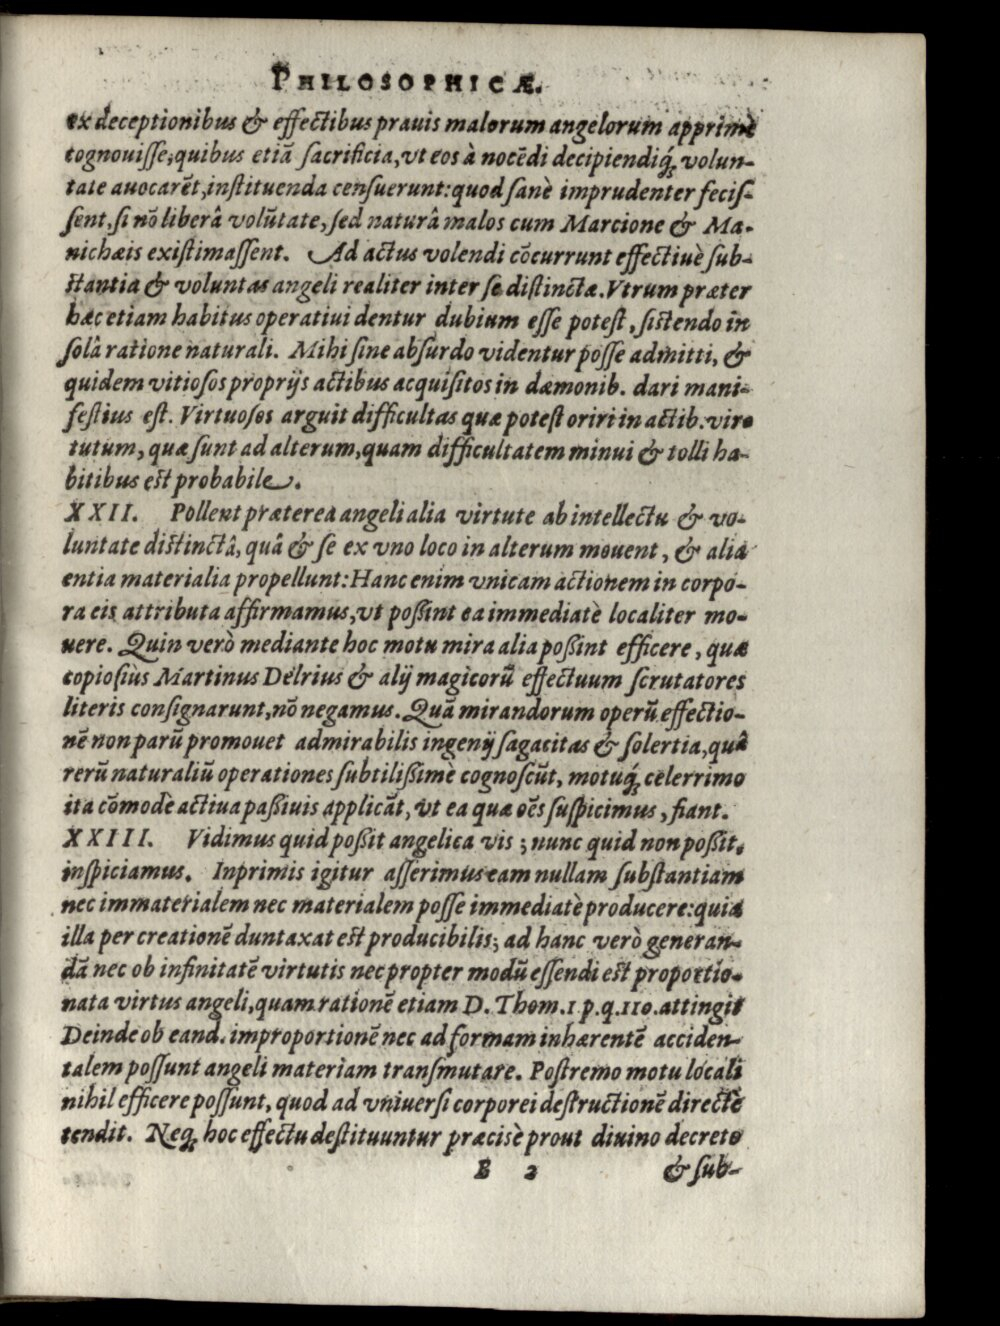 PHILOSOPHICÆ.
ex deceptionibus & effectibus prauis malorum angelorum apprimè
cognouisse, quibus etiā sacrificia, vt eos à nocēdi decipiendiq́; volun-
tate auocarēt, instituenda censuerunt: quod sanè imprudenter fecis-
sent, si nō liberâ volūtate, sed naturâ malos cum Marcione & Ma-
nichæis existimassent. Ad actus volendi cōcurrunt effectiuè sub-
stantia & voluntas angeli realiter inter se distinctæ. Vtrum præter
hæc etiam habitus operatiui dentur dubium esse potest, sistendo in
solâ ratione naturali. Mihi sine absurdo videntur posse admitti, &
quidem vitiosos proprijs actibus acquisitos in dæmonib. dari mani-
festius est. Virtuosos arguit difficultas quæ potest oriri in actib. vir-
tutum, quæ sunt ad alterum, quam difficultatem minui & tolli ha-
bitibus est probabile.
XXII. Pollent præterea angeli alia virtute ab intellectu & vo-
luntate distinctâ, quâ & se ex vno loco in alterum mouent, & alia
entia materialia propellunt: Hanc enim vnicam actionem in corpo-
ra eis attributa affirmamus, vt possint ea immediatè localiter mo-
uere. Quin verò mediante hoc motu mira alia possint efficere, quæ
copiosiùs Martinus Delrius & alij magicorū effectuum scrutatores
literis consignarunt, nō negamus. Quā mirandorum operū effectio-
nē non parū promouet admirabilis ingenij sagacitas & solertia, quâ
rerū naturaliū operationes subtilissimè cognoscūt, motuq́; celerrimo
ita cōmodè actiua passiuis applicāt, vt ea quæ oēs suspicimus, fiant.
XXIII. Vidimus quid possit angelica vis; nunc quid non possit,
inspiciamus. Inprimis igitur asserimus eam nullam substantiam
nec immaterialem nec materialem posse immediatè producere: quia
illa per creationē duntaxat est producibilis; ad hanc verò generan-
dā nec ob infinitatē virtutis nec propter modū essendi est proportio-
nata virtus angeli, quam rationē etiam D. Thom. 1. p. q. 110. attingit
Deinde ob eand. improportionē nec ad formam inhærentē acciden-
talem possunt angeli materiam transmutare. Postremo motu locali
nihil efficere possunt, quod ad vniuersi corporei destructionē directè
tendit. Neq; hoc effectu destituuntur præcisè prout diuino decreto
E 2 & sub-